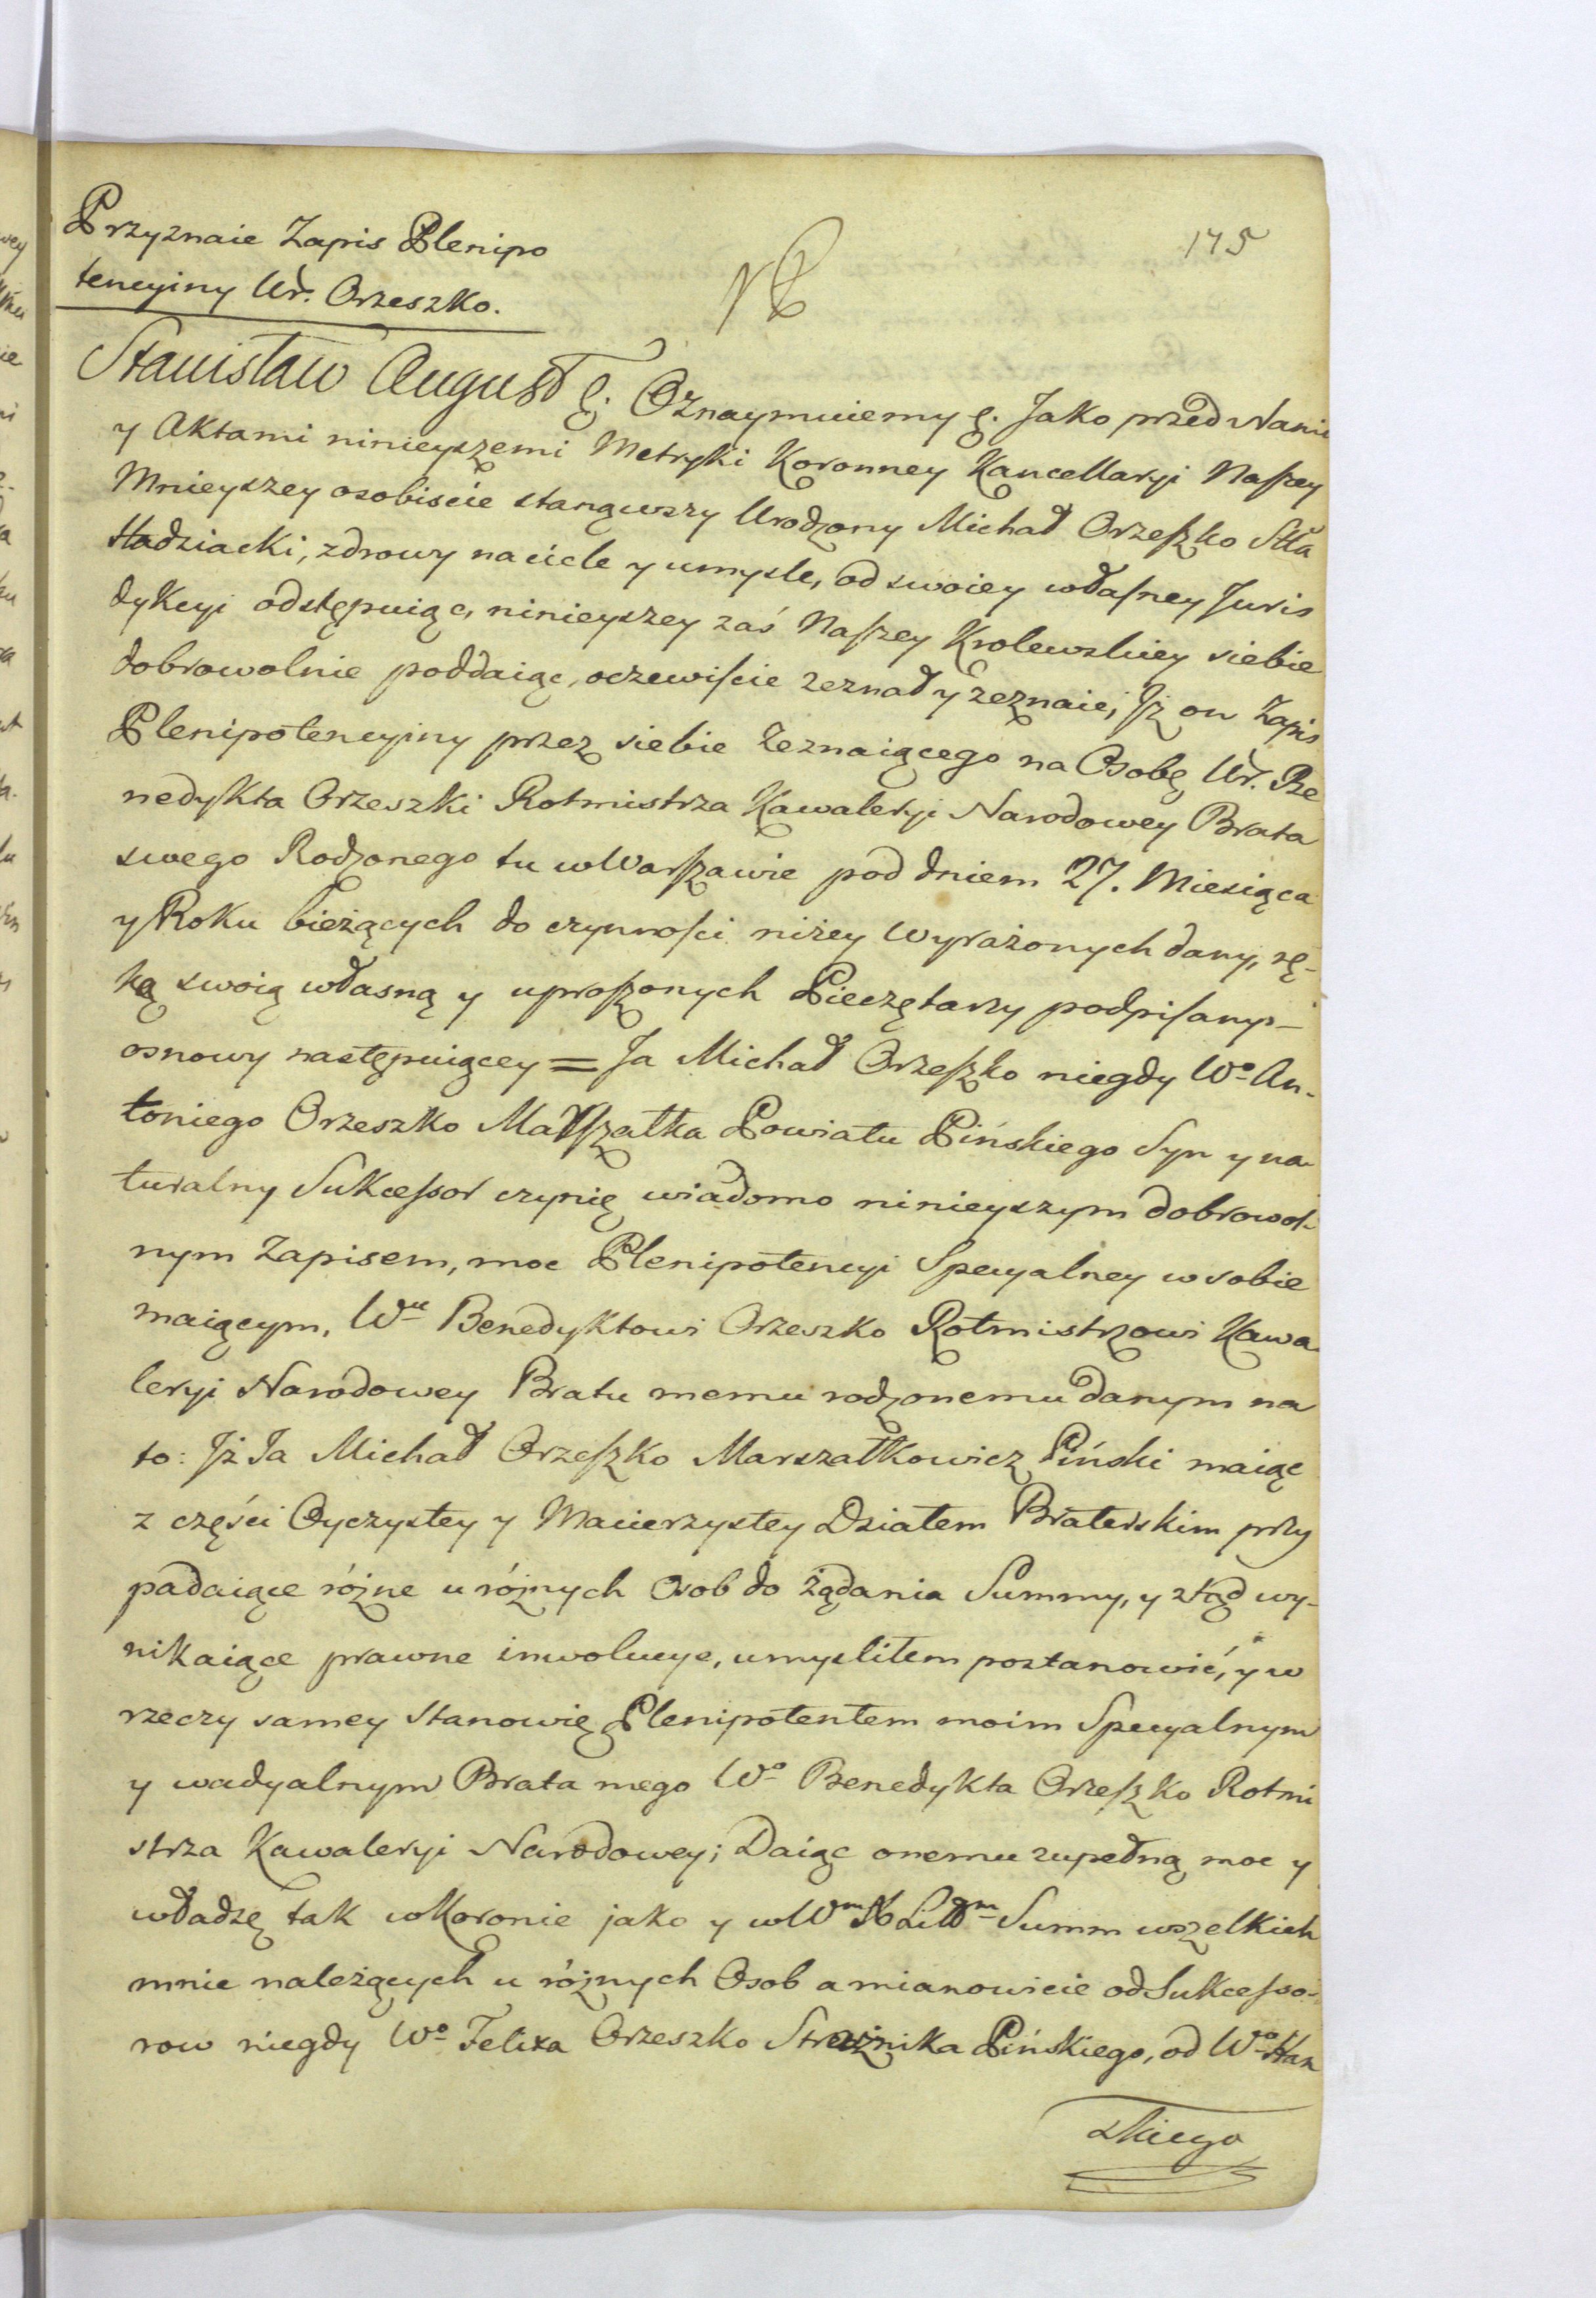 Przyznaie Zapis Plenipo
tencyiny Ur. Orzeszko.
175
Stanisław August &. Oznaymuiemy &. Jako przed Nami
y Aktami ninieyszemi Metryki Koronney Kancellaryi Naszey
Mnieyszey osobiscie stanąwszy Urodzony Michał Orzeszko Stta
Hadziacki, zdrowy na ciele y umysle, od swoiey własney Juris
dykcyi odstępuiąc, ninieyszey zaś Naszey Krolewskiey siebie
dobrowolnie poddaiąc, oczewiscie zeznał y zeznaie, Jż on Zapis
Plenipotencyiny przez siebie Zeznaiącego na Osobę Ur. Be
nedykta Orzeszki Rotmistrza Kawaleryi Narodowey Brata
swego Rodzonego tu w Warszawie pod dniem 27. Miesiąca
y Roku bieżących do czynnosci niżey wyrażonych dany, rę-
ką swoią własną y uproszonych Pieczętarzy podpisany-
osnowy następuiącey = Ja Michał Orzeszko niegdy Wo An-
toniego Orzeszko Marszałka Powiatu Pińskiego Syn y na
turalny Sukcessor czynię wiadomo ninieyszym dobrowol-
nym Zapisem, moc Plenipotencyi Specyalney w sobie
maiącym, Wu Benedyktowi Orzeszko Rotmistrzowi Kawa
leryi Narodowey Bratu memu rodzonemu danym na
to: Jż Ja Michał Orzeszko Marszałkowicz Piński maiąc
z części Oyczystey y Macierzystey Działem Braterskim przy
padaiące różne u różnych Osob do żądania Summy, y ztąd wy-
nikaiące prawne inwolucye, umysliłem postanowić, y w
rzeczy samey stanowię Plenipotentem moim Specyalnym
y wadyalnym Brata mego Wo Benedykta Orzeszko Rotmi
strza Kawaleryi Narodowey; Daiąc onemu zupełną moc y
władzę tak w Koronie jako y w Wm X Litm Summ wszelkich
mnie należących u różnych Osob a mianowicie od Sukcesso-
row niegdy Wo Felixa Orzeszko Strażnika Pińskiego, od Wo